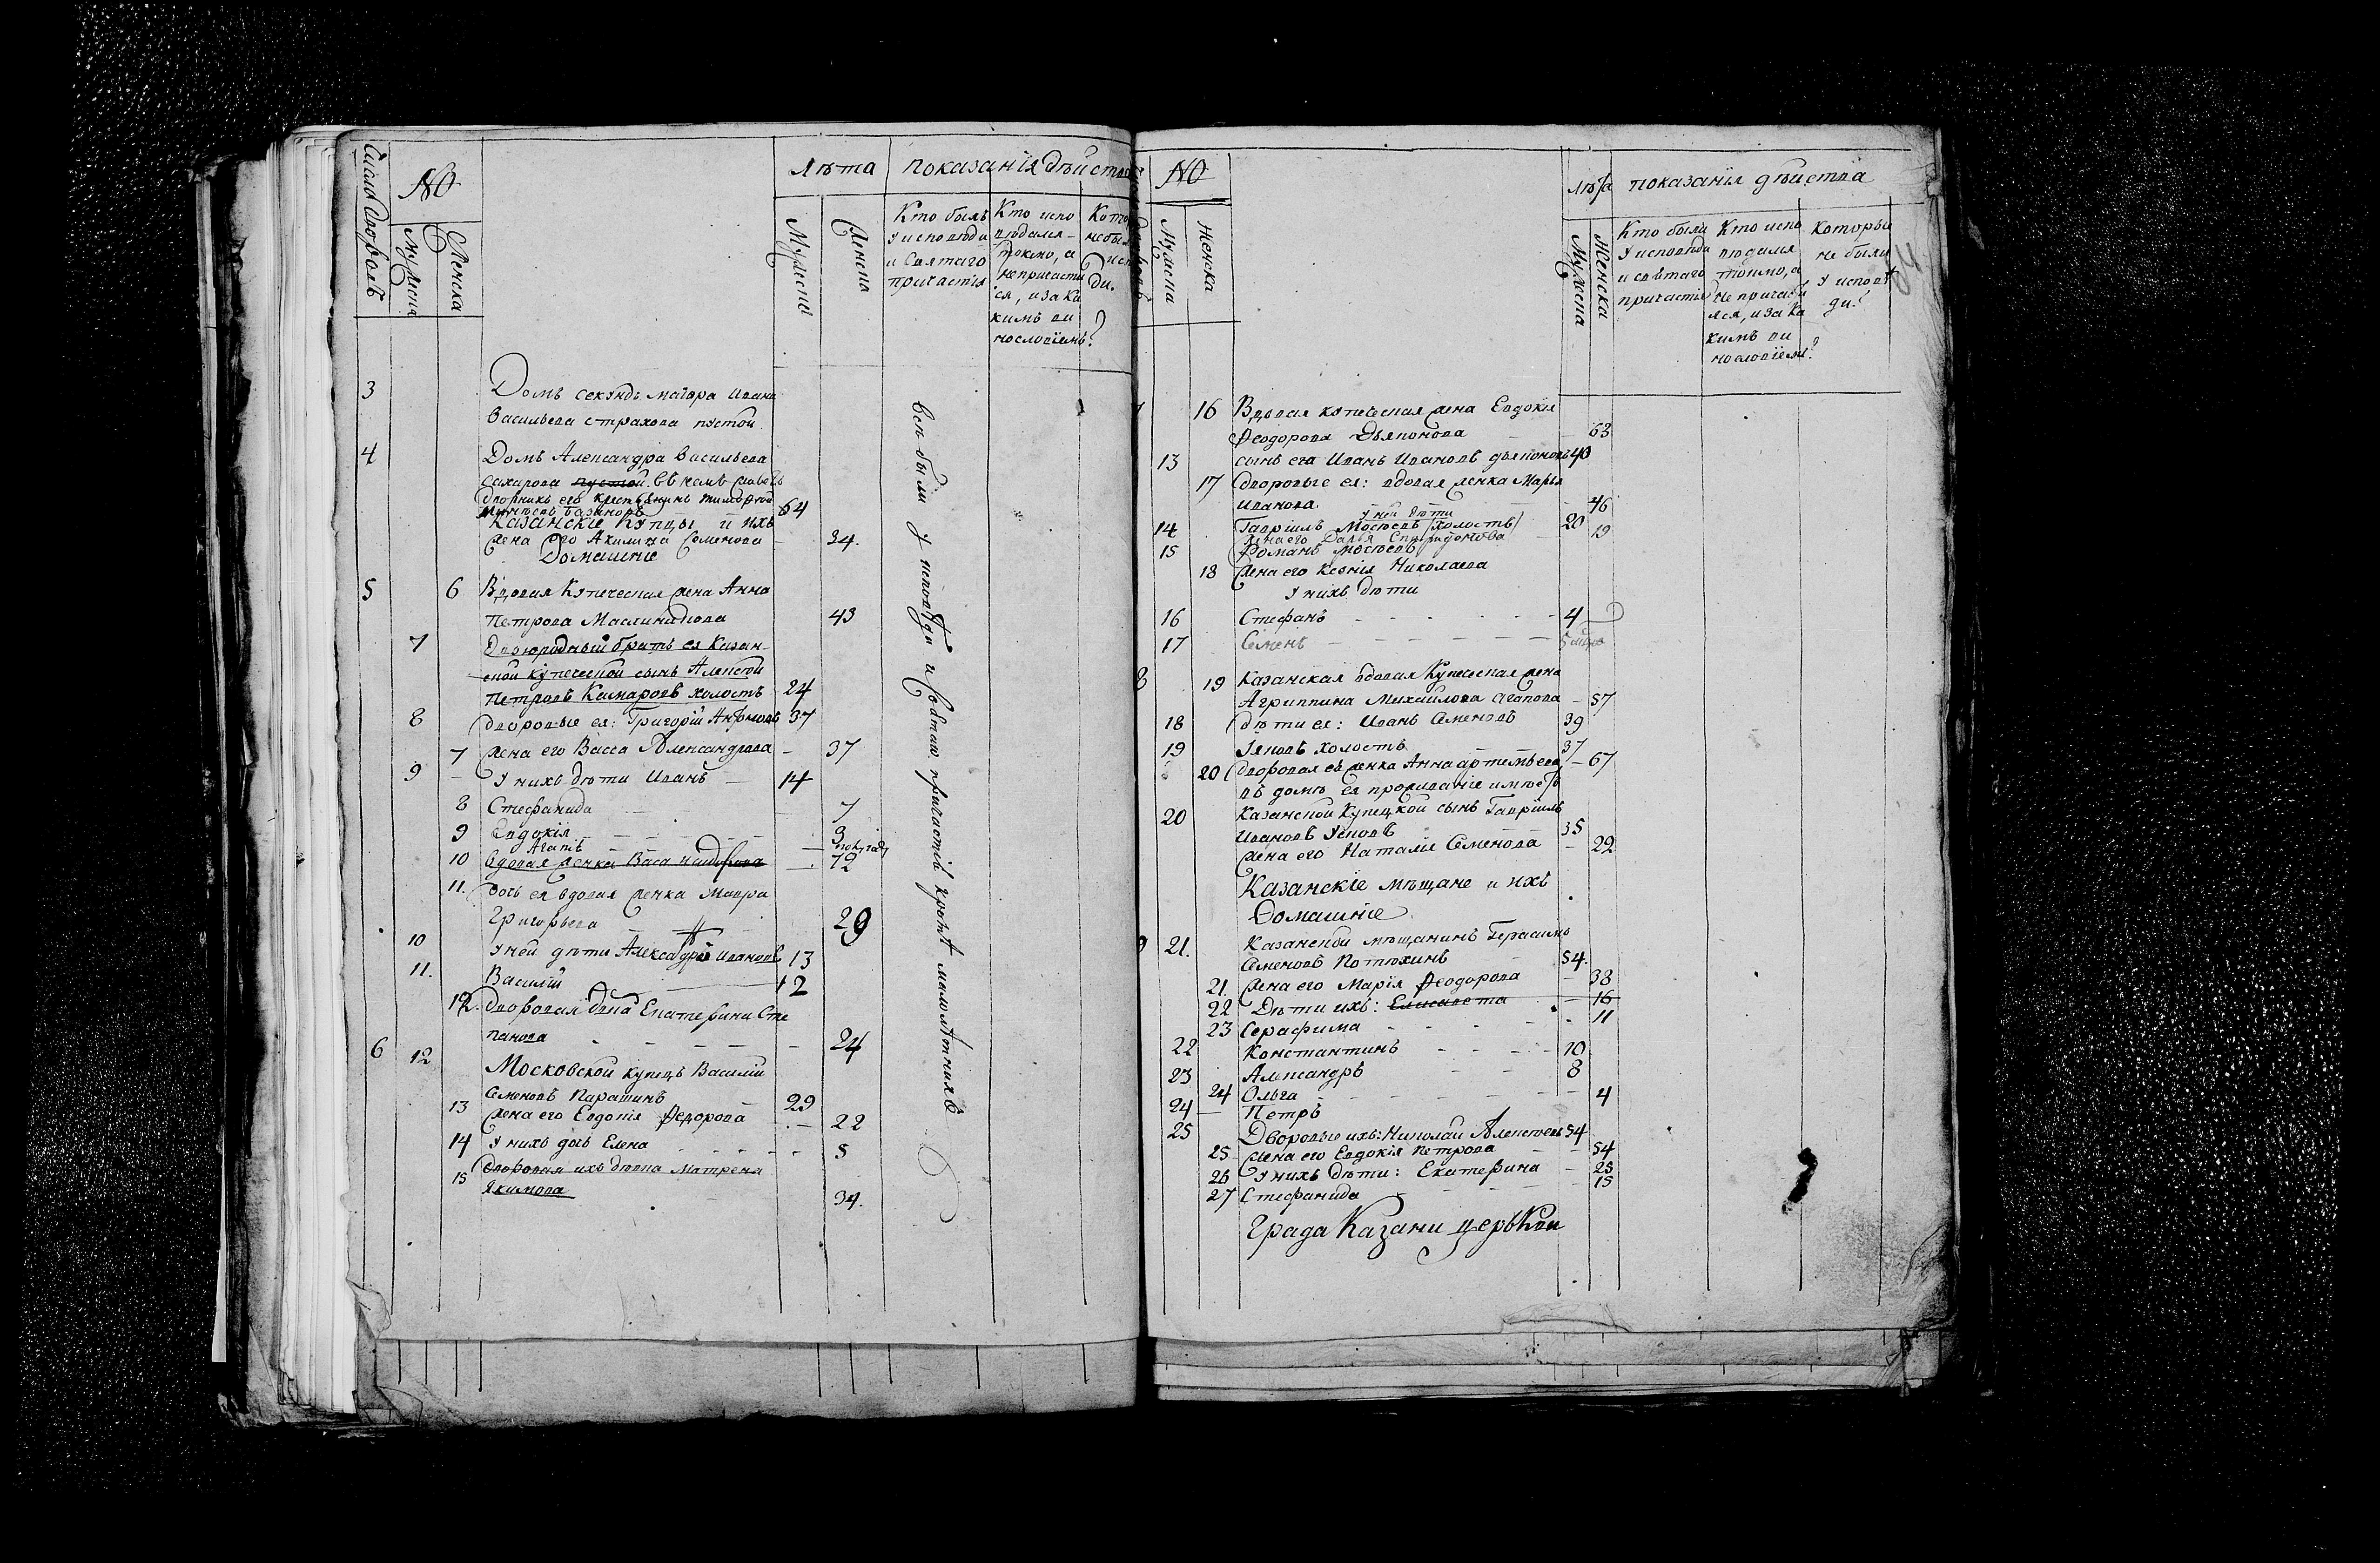 Число дворовъ
№
Мужеска
Женска
Лѣта
Мужеска
Женска
показанія дѣйства
Кто былъ
у исповѣди
и Святаго
причастія
Кто испо
вѣдался
токмо, а
непричасти
ся, и за ка
кимъ ви
нословіемъ?
не был
ди.
3 Домъ секундъ маіора Ивана
Васильева Страхова пустой
4 Домъ Александра Васильева
Сахарова пустой. Въ немъ
дворникъ его крестьянинъ 64
Казанскіе Купцы и ихъ
жена его Акилина Семенова 34.
Домашніе
5 6 Вдовая Купеческая жена Анна
Петрова 43
7 Двоюродный братъ ея Казан-
ской купеческой сынъ Алексѣй
Петровъ Камаровъ холостъ 24
8 Дворовые ея: Григорій Антоновъ 37
7 жена его Васса Александрова - 37
9 У нихъ дѣти Иванъ - 14
8 Стефанида 7
9 Евдокія 3
Агапъ полугоду
10 вдовая женка Васа 72
11. дочь ея вдовая женка Мавра
Григорьева 29
10 У ней дѣти Александръ Ивановъ 13
11. Василій 12
12. Дворовая девка Екатерина Сте
панова 24
6 12 Московской купецъ Василій
Семеновъ Парашинъ 29
13 жена его Евдокія Федорова 22
14 У нихъ дочь Елена 5
15 дворовая ихъ дѣвка Матрена
Якимова 34.
всѣ были у исповѣди и Святаго причастія кромѣ малолѣтнихъ
№
Мужеска
Женска
лѣта
Мужеска
Женска
показанія дѣйства
Кто были
у исповѣди
и святаго
причастія
Кто испо
вѣдался
токмо, а
не причасти
лся, и за ка
кимъ ви
нословіемъ?
которыи
не были
у исповѣ
ди?
16 Вдовая купеческая жена Евдокія
Феодорова Дьяконова 63
13 сынъ ега Иванъ Ивановъ дьяконовъ 40
17 дворовые ея: вдовая женка Марья
Иванова 46
у ней дѣти
14 Гавріилъ Мосѣевъ (холостъ) 20
жена его Дарья Спиридонова 19
15 Романъ Мосѣевъ
18 жена его Ксенія Николаева
У нихъ дѣти
16 Стефанъ 4
17 Семенъ 5
8 19 Казанская вдовая Купеческая жена
Агриппина Михайлова Агапова - 57
18 Дѣти ея: Иванъ Семеновъ 39
19 Іаковъ холостъ 37
20 Дворовая еѣ женка Анна Артемьева - 67
въ домѣ ея проживаніе имѣетъ
20 Казанской Купецкой сынъ Гавріилъ
Ивановъ 35
жена его Наталіе Семенова 22
Казанскіе мѣщане и ихъ
Домашніе
9 21. Казанской мѣщанинъ Герасимъ
Семеновъ Потѣхинъ 54.
21. жена его Марія Феодорова 38
22 Дѣти ихъ: Елисавета 16
23 Серафима 11
22 Константинъ 10
23 Александръ 8
24 Ольга 4
24 Петръ
25 Дворовые ихъ: Николай Алексѣевъ 54
25 жена его Евдокія Петрова 54
26 У нихъ дѣти: Екатерина 25
27 Стефанида 15
Града Казани церькви